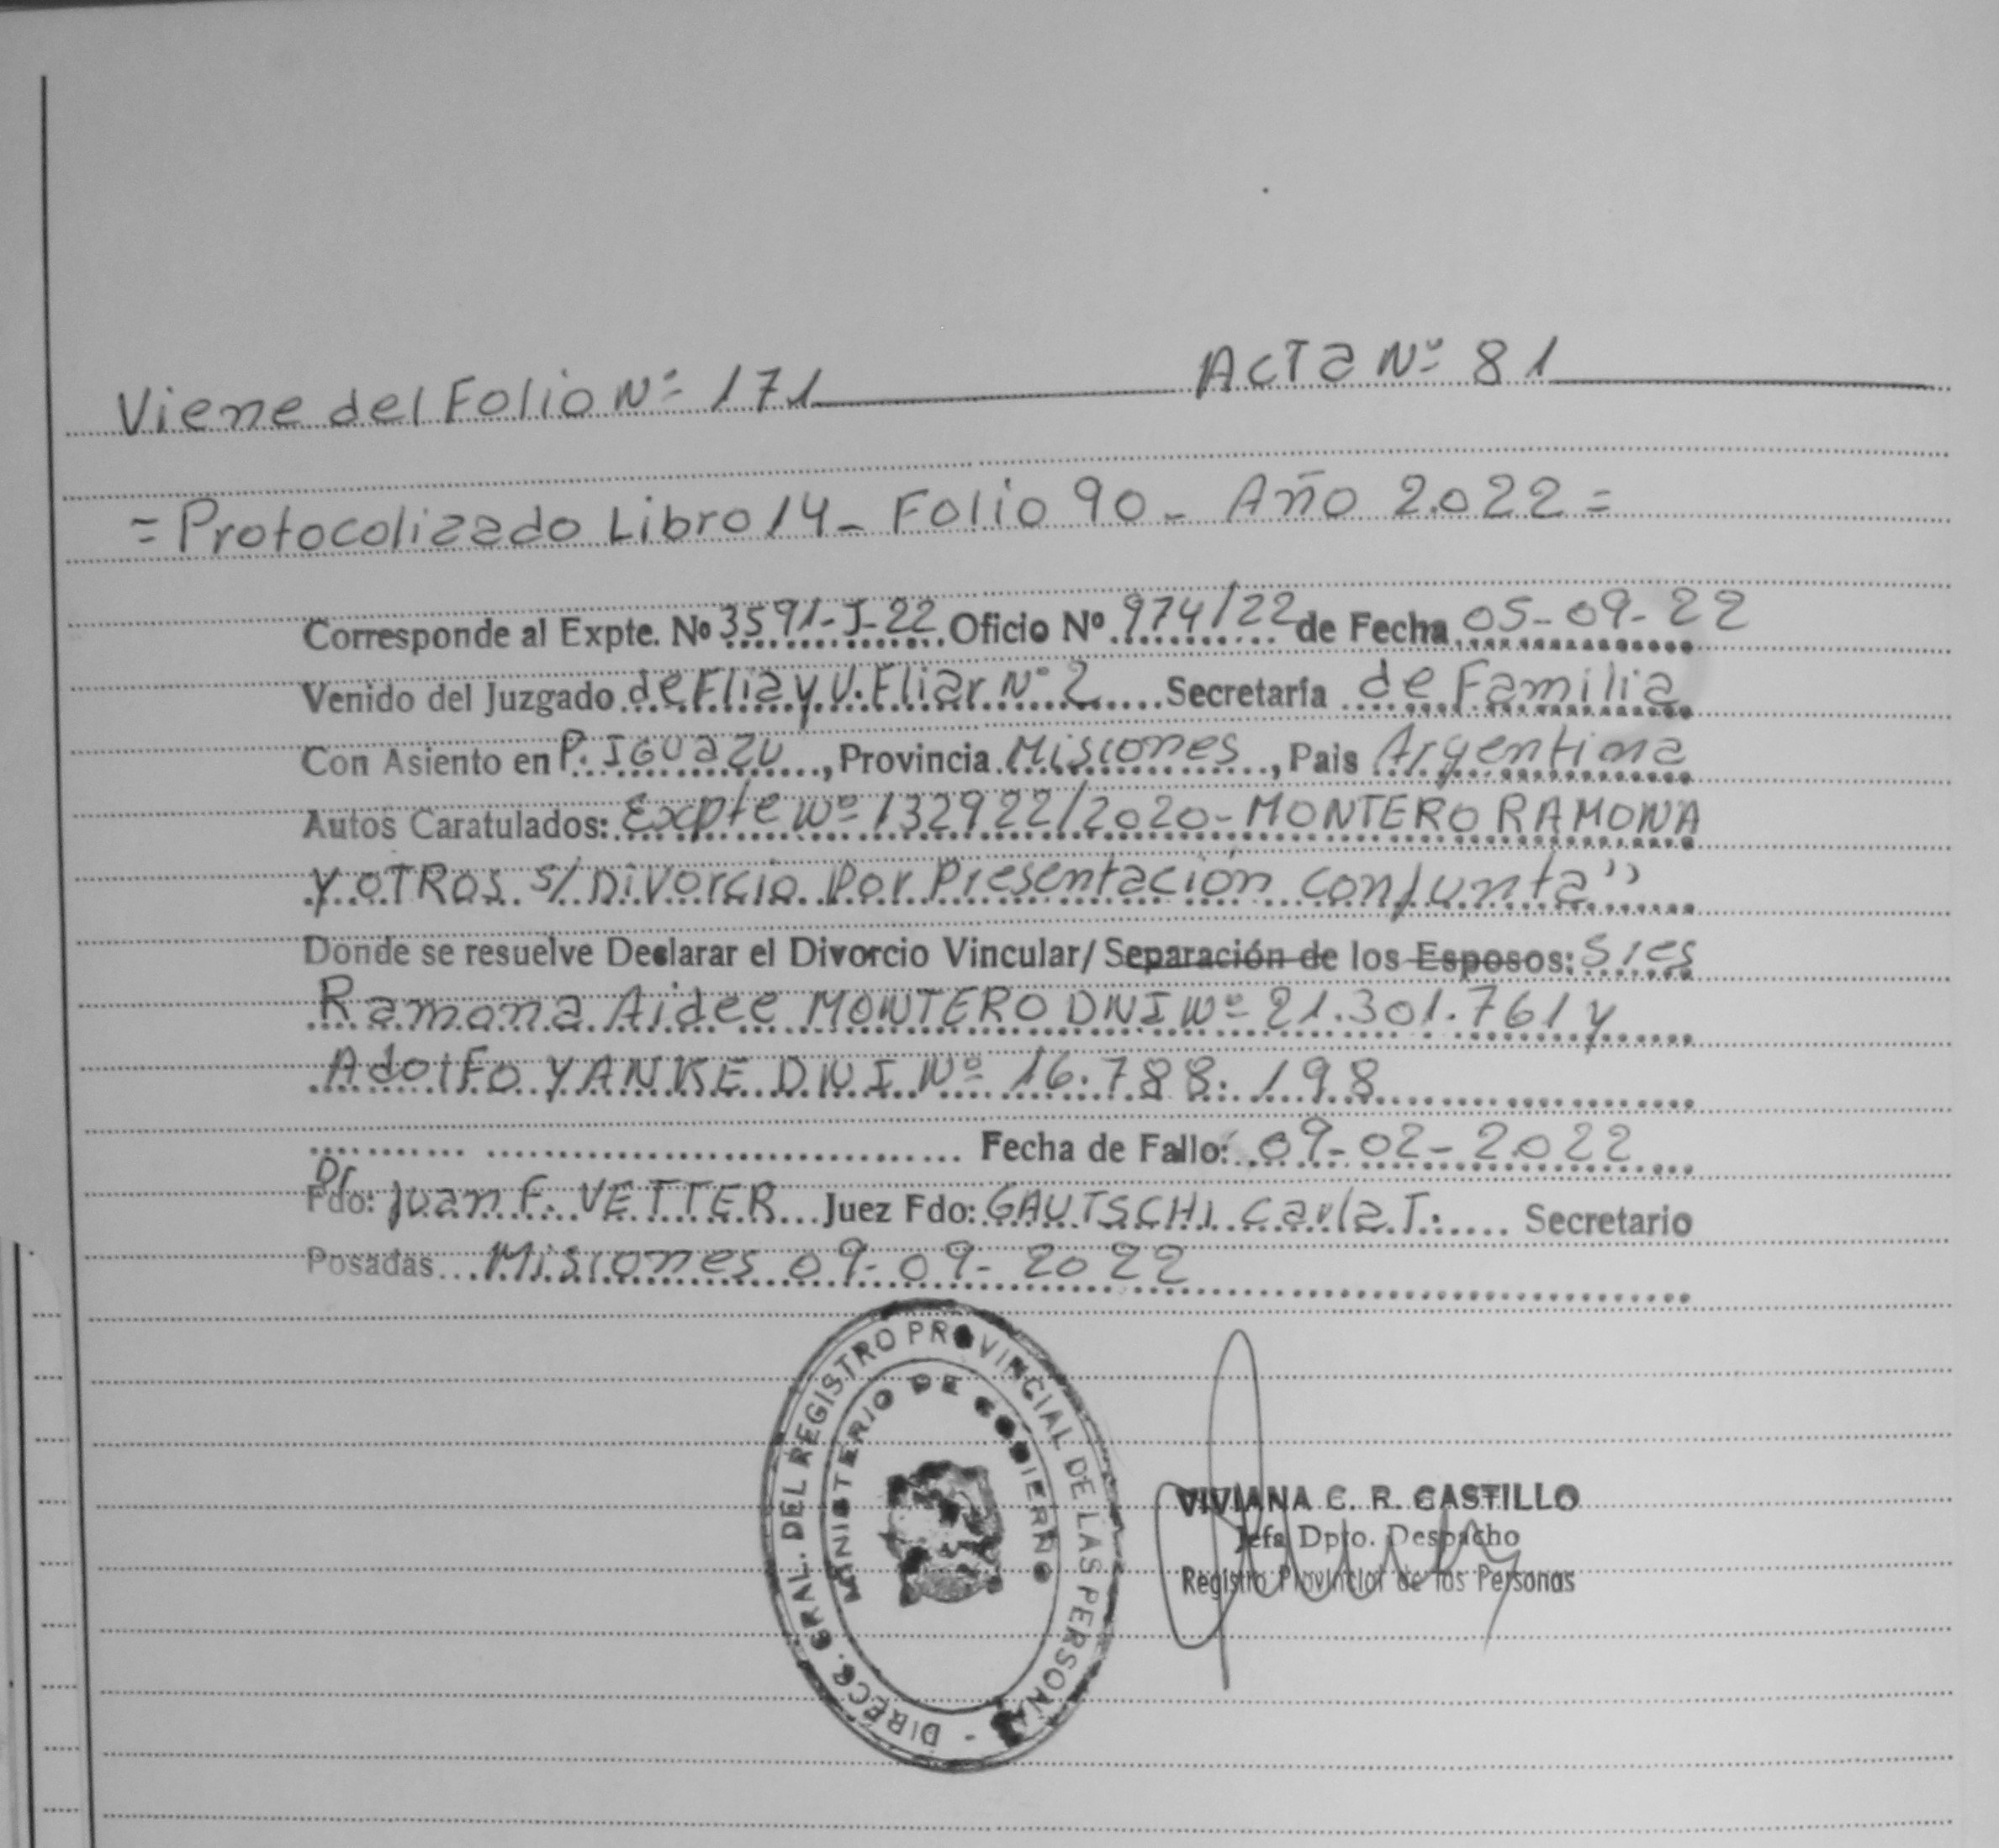 Viene del Folio Nº 171 ACTA Nº 81
= Protocolizado Libro 14 - Folio 90 - Año 2.022 =
Corresponde al Expte. Nº 3591-J-22 Oficio Nº 974/22 de Fecha 05-09-22
Venido del Juzgado de Flia y V. Fliar Nº 2 Secretaría de Familia
Con Asiento en P. IGUAZU, Provincia Misiones, Pais Argentina
Autos Caratulados: Expte Nº 132922/2020 - MONTERO RAMONA
Y OTROS S/ Divorcio Por Presentación conjunta"
Donde se resuelve Declarar el Divorcio Vincular/ Separación de los Esposos: Sres
Ramona Aidee MONTERO DNI Nº 21.301.761 y
Adolfo YANKE DNI Nº 16.788.198
Fecha de Fallo: 09-02-2022
Fdo: Dr Juan F. VETTER Juez Fdo: GAUTSCHI Carla T. Secretario
Posadas Misiones 09-09-2022
DIRECC. GRAL. DEL REGISTRO PROVINCIAL DE LAS PERSONAS -
MINISTERIO DE GOBIERNO
VIVIANA C. R. CASTILLO
Jefa Dpto. Despacho
Registro Provincial de las Personas